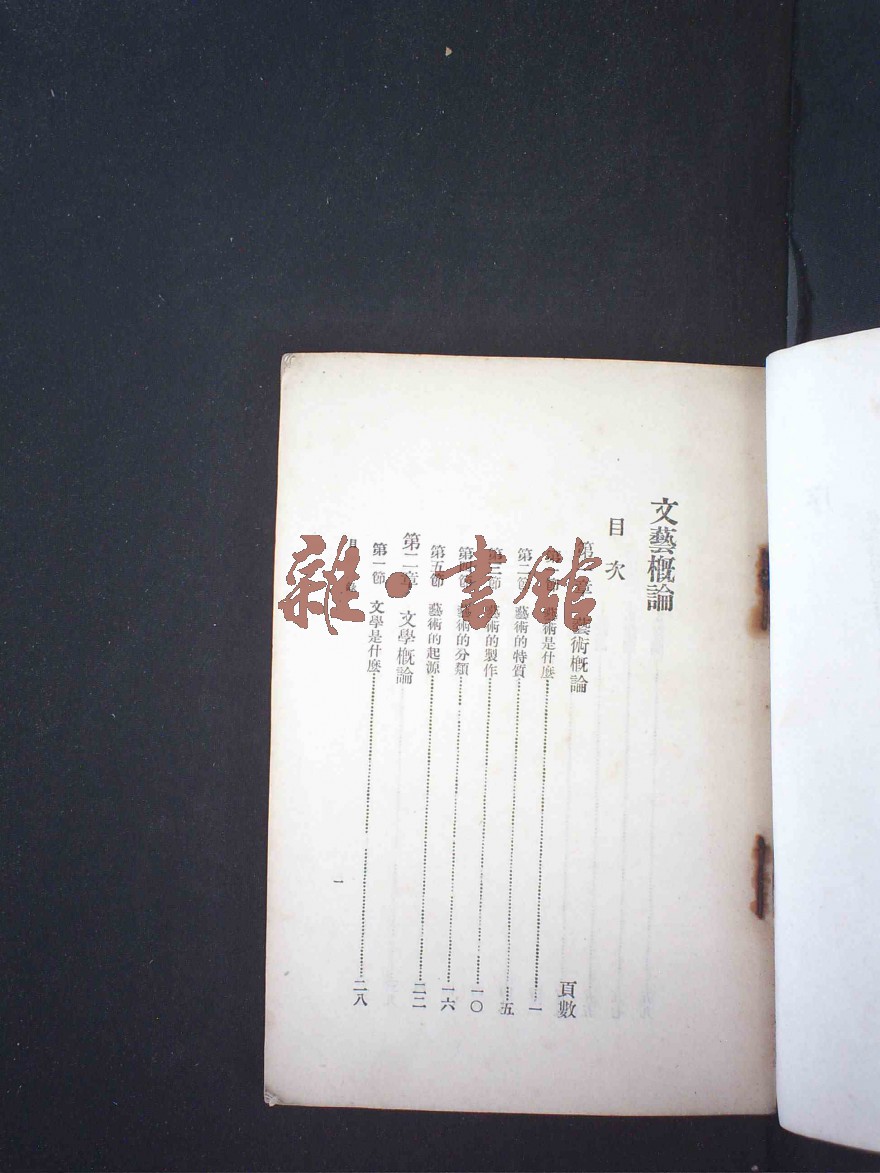 文藝概論
目次
第一章 藝術概論 頁數
第一節 藝術是什麽 一
第二節 藝術的特質 五
第三節 藝術的製作 一〇
第四節 藝術的分類 一六
第五節 藝術的起源 二二
第二章 文學概論
第一節 文學是什麽 二八
一
雜·書館